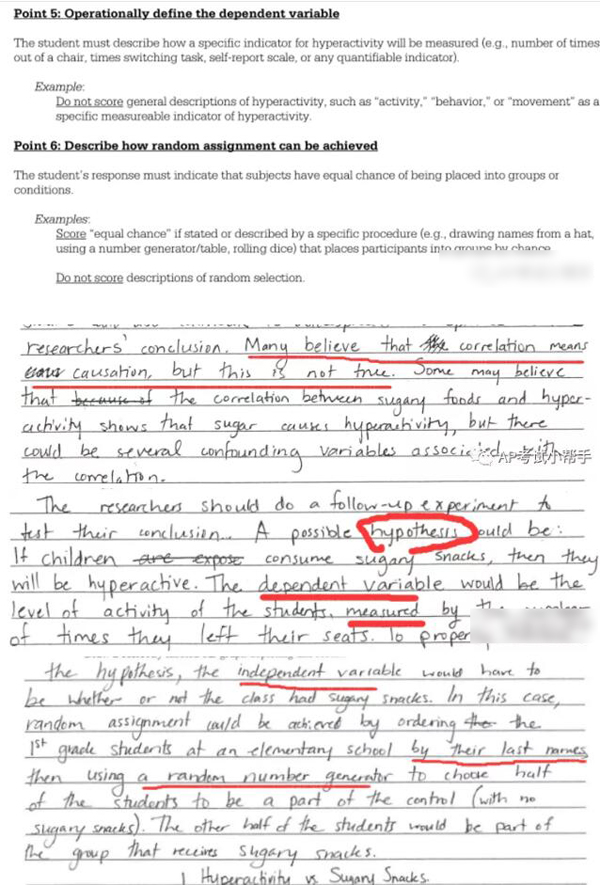 Point 5: Operationally define the dependent variable
The student must describe how a specific indicator for hyperactivity will be measured (e.g., number of times
out of a chair, times switching task, self-report scale, or any quantifiable indicator).
Example:
Do not score general descriptions of hyperactivity, such as "activity," "behavior," or "movement" as a
specific measureable indicator of hyperactivity.
Point 6: Describe how random assignment can be achieved
The student's response must indicate that subjects have equal chance of being placed into groups or
conditions.
Examples:
Score "equal chance" if stated or described by a specific procedure (e.g., drawing names from a hat,
using a number generator/table, rolling dice) that places participants into groups by chance
Do not score descriptions of random selection.
researchers' conclusion. Many believe that correlation means
causation, but this is not true. Some may believe
that because of the correlation between sugary foods and hyper-
activity shows that sugar causes hyperactivity, but there
could be several confounding variables associated with
the correlation.
AP考试小帮手
The researchers should do a follow-up experiment to
test their conclusion. A possible hypothesis could be:
If children are expose consume sugary snacks, then they
will be hyperactive. The dependent variable would be the
level of activity of the students, measured by
of times they left their seats. To proper
the hypothesis, the independent variable would have to
be whether or not the class had sugary snacks. In this case,
random assignment could be achieved by ordering the the
1st grade students at an elementary school by their last names,
then using a random number generator to choose half
of the students to be a part of the control (with no
sugary snacks). The other half of the students would be part of
the group that receives sugary snacks.
Hyperactivity vs. Sugary Snacks.